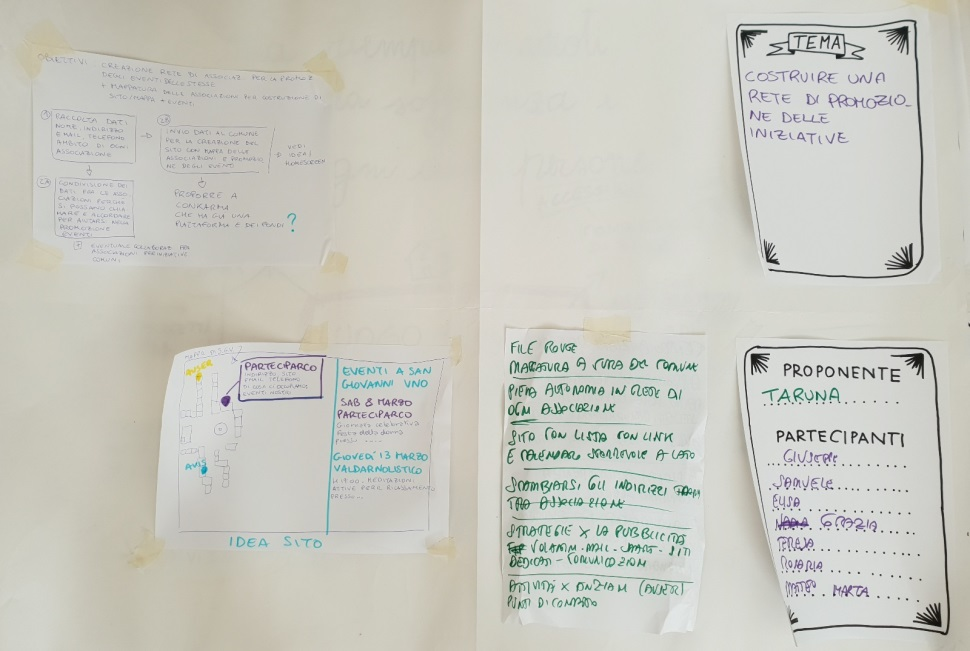 OBIETTIVI: CREAZIONE RETE DI ASSOCIAZ. PER LA PROMOZ
DEGLI EVENTI DELLE STESSE
+ MAPPATURA DELLE ASSOCIAZIONI PER COSTRUZIONE DI
SITO/MAPPA + EVENTI
RACCOLTA DATI
NOME, INDIRIZZO
EMAIL TELEFONO
AMBITO DI OGNI
ASSOCIAZIONE
INVIO DATI AL COMUNE
PER LA CREAZIONE DEL
SITO CON MAPPA DELLE
ASSOCIAZIONI E PROMOZIO
NE DEGLI EVENTI
VEDI
IDEA
CONDIVISIONE DEI
DATI PER LE ASSO
CIAZIONI PERCHÉ
SI POSSANO CHIA
MARE E ACCORDARE
PER AIUTARSI NELLA
PROMOZIONE
EVENTI
PROPORRE A
CONFARMA
CHE HA GIÀ UNA
PIATTAFORMA E DEI FONDI ?
EVENTUALE COLLABORAZ. PER
ASSOCIAZIONI PER INIZIATIVE
COMUNI
TEMA
COSTRUIRE UNA
RETE DI PROMOZIO-
NE DELLE
INIZIATIVE
MAPPA DI SGV
AUSER
PARTECIPARCO
INDIRIZZO, SITO
EMAIL, TELEFONO
DI COSA CI OCCUPIAMO
EVENTI NOSTRI
AVIS
EVENTI A SAN
GIOVANNI UNO
SAB 8 MARZO
PARTECIPARCO
Giornata celebrativa
Festa della donna
presso .....
GIOVEDÌ 13 MARZO
VALDARNOLISTICO
H 19:00 - MEDITAZIONI
ATTIVE PER RILASSAMENTO
PRESSO...
IDEA SITO
FILE ROUGE
MAPPATURA A CURA DEL COMUNE
PIENA AUTONOMIA IN CLOSE DI
OGNI ASSOCIAZIONE
SITO CON LISTA CON LINK
E CALENDARIO SCORREVOLE A LATO
SCAMBIARSI GLI INDIRIZZI
TRA ASSOCIAZIONI
STRATEGIE X LA PUBBLICITÀ
VOLANTINI - MAIL - SMART - SITI
DEDICATI - COMUNICAZIONI
ATTIVITÀ X ANZIANI (AUSER)
PUNTI DI CONTATTO
PROPONENTE
TARUNA
PARTECIPANTI
GIUSEPPE
SAMUELE
ELISA
GRAZIA
TERESA
ROSARIA
MATTEO MARTA